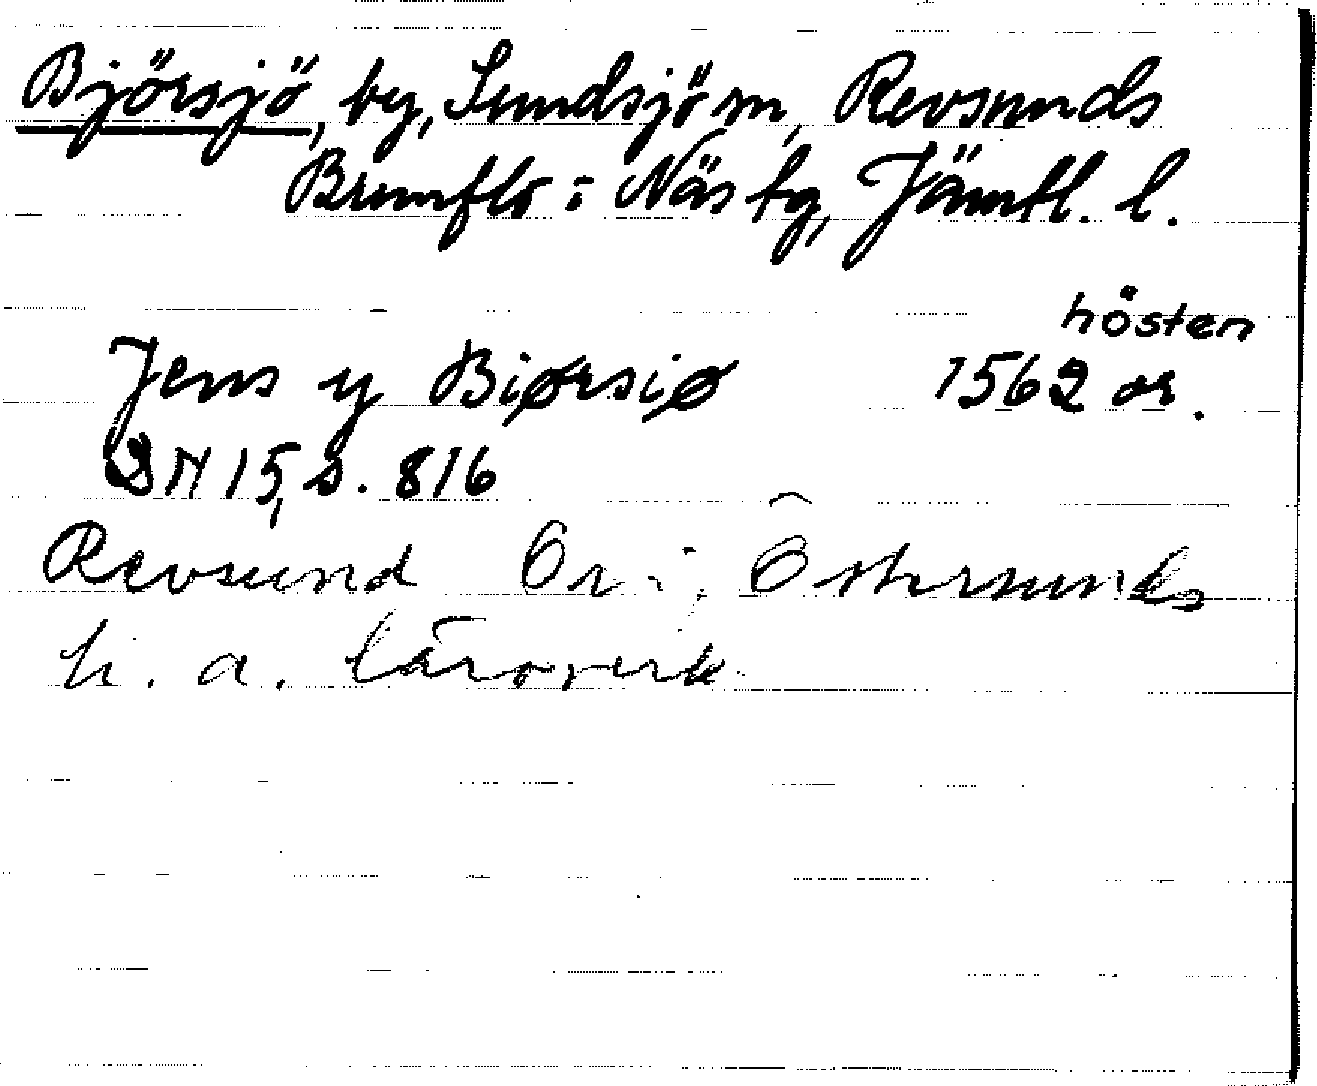 Björsjö, by, Sundsjö sn, Revsunds
Brunflo i Näs tg, Jämtl. l.
hösten
Jens y Biørsiø 1562 or.
DN 15, s. 816
Revsund Or i Östersunds
h. a. läroverk